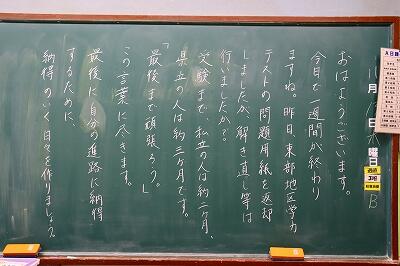 月 日 曜日 B
おはようございます。
今日で一週間が終わり
ますね。昨日、東部地区学力
テストの問題用紙を返却
しましたが、解き直し等は
行いましたか？
受験まで、私立の人は約二ヶ月、
県立の人は約三ヶ月です。
「最後まで頑張ろう。」
この言葉に尽きます。
最後に自分の進路に納得
するために、
納得のいく日々を作りましょう。